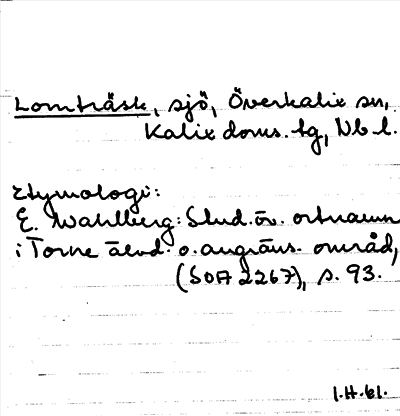 Lomträsk, sjö, Överkalix sn,
Kalix doms. tg, Nb l.
Etymologi:
E. Wahlberg: Stud. öv. ortnamn
i Torne älvd. o. angräns. områd,
(SOA 2267), s. 93.
1.H.61.